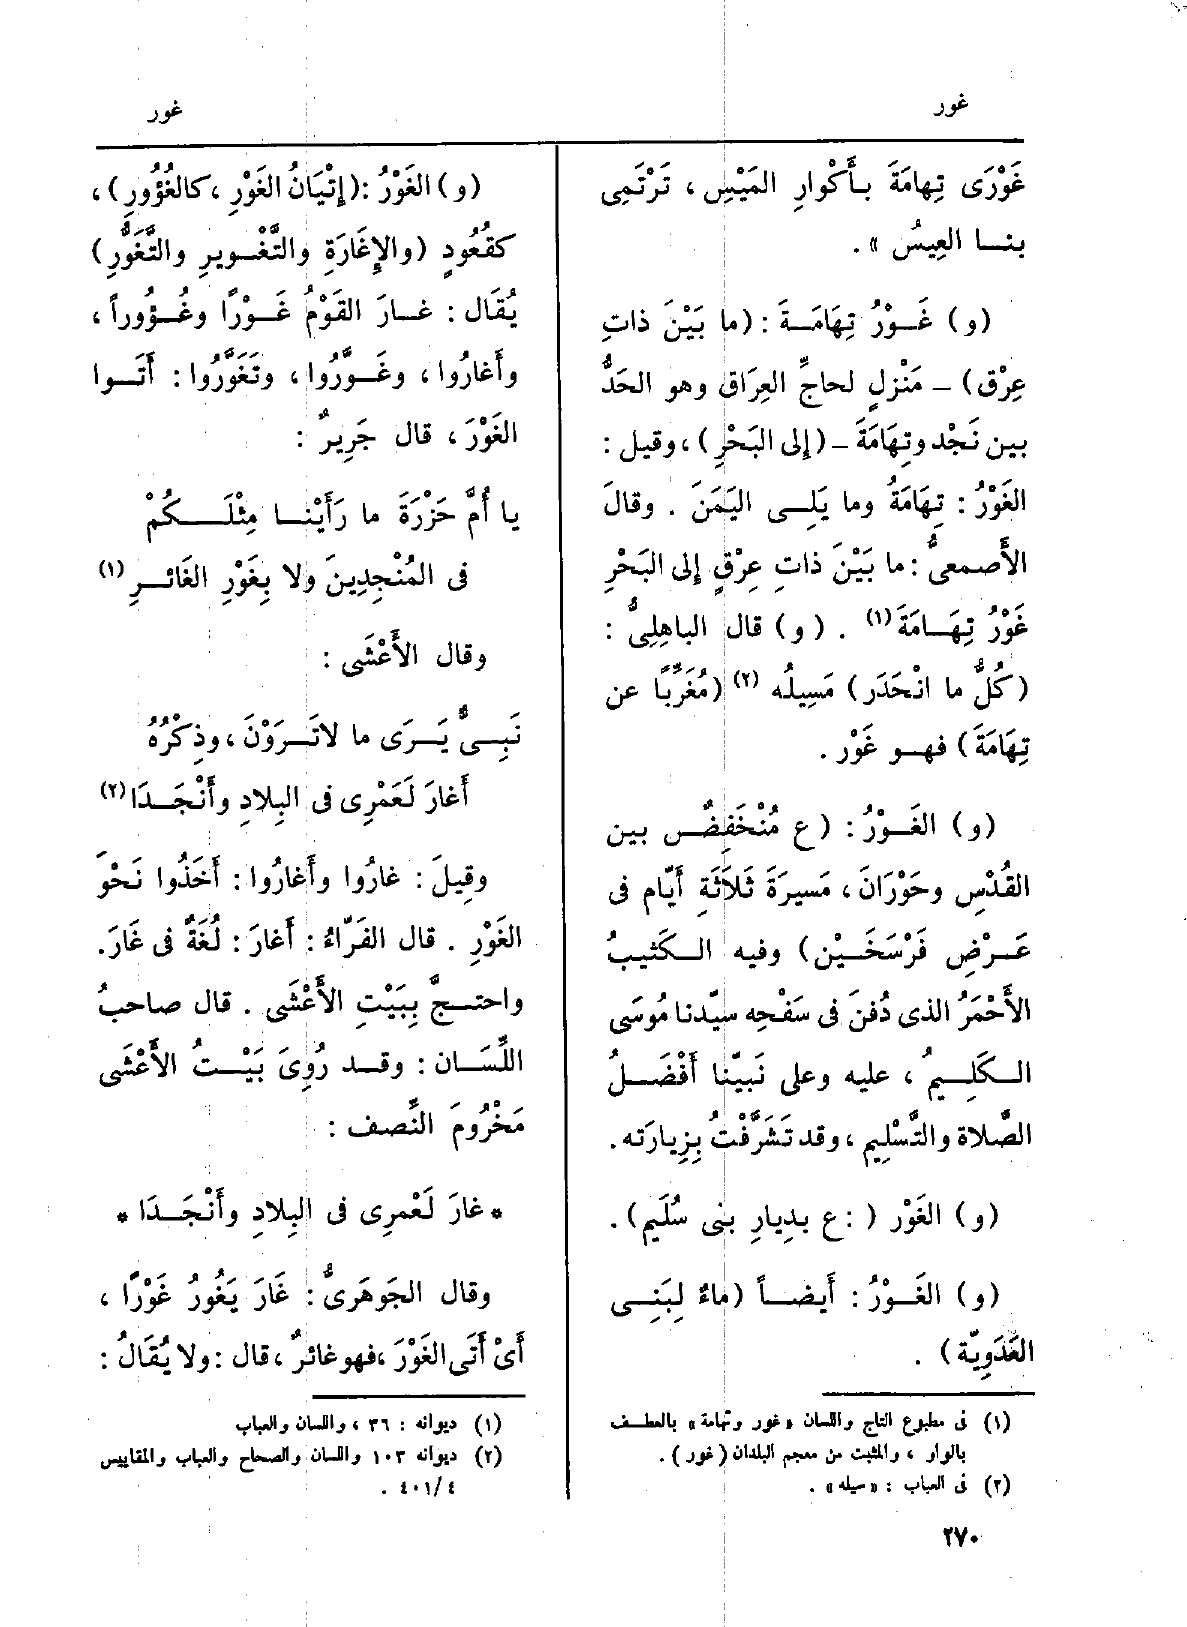 غور
غَوْرَى تِهامَةَ بأَكْوارِ المَيْسِ ، تَرْتَمِى
بنا العِيسُ » .
(و) غَوْرُ تِهَامَةَ : (ما بَيْنَ ذاتِ
عِرْقٍ) – مَنْزِلٍ لحاجِّ العِرَاقِ وهو الحَدُّ
بين نَجْد وتِهَامَةَ – (إِلى البَحْرِ) ، وقيل :
الغَوْرُ : تِهَامَةُ وما يَلِى اليَمَنَ . وقالَ
الأَصمعىُّ : ما بَيْنَ ذاتِ عِرْقٍ إِلى البَحْرِ
غَوْرُ تِهَامَةَ (١) . (و) قال الباهِلِىُّ :
(كُلُّ ما انْحَدَر) مَسِيلُه (٢) (مُغَرِّبًا عن
تِهَامَةَ) فهو غَوْر .
(و) الغَوْرُ : (ع مُنْخَفِضٌ بين
القُدْسِ وحَوْرَانَ ، مَسيرَةَ ثَلاَثَةِ أَيّام فى
عَرْضِ فَرْسَخَيْن) وفيه الكَثِيبُ
الأَحْمَرُ الذى دُفنَ فى سَفْحِه سيّدنا مُوسَى
الكَلِيمُ ، عليه وعلى نَبيّنا أَفْضَلُ
الصَّلاة والتَّسْلِيم ، وقد تَشَرَّفْتُ بِزِيارَته .
(و) الغَوْر ( : ع بدِيارِ بنى سُلَيم) .
(و) الغَوْرُ : أَيضاً (ماءٌ لِبَنِى
العَدَوِيّة) .
(١) فى مطبوع التاج واللسان «غور وتهامة» بالعطف
بالواو ، والمثبت من معجم البلدان (غور) .
(٢) فى العباب : «سيله» .
غور
(و) الغَوْرُ : (إِتْيَانُ الغَوْرِ ، كالغُؤُورِ) ،
كقُعُودٍ (والإِغَارَةِ والتَّغْويرِ والتَّغَوُّرِ)
يُقَال : غارَ القَوْمُ غَوْرًا وغُؤُوراً ،
وأَغارُوا ، وغَوَّرُوا ، وتَغَوَّرُوا : أَتَوا
الغَوْرَ ، قال جَرِيرٌ :
يا أُمَّ حَزْرَةَ ما رَأَيْنا مِثْلَكُمْ
فى المُنْجِدِينَ ولا بِغَوْرِ الغَائرِ (١)
وقال الأَعْشَى :
نَبِىٌّ يَرَى ما لاتَرَوْنَ ، وذِكْرُهُ
أَغارَ لَعَمْرِى فى البِلادِ وأَنْجَدَا (٢)
وقِيلَ : غارُوا وأَغارُوا : أَخَذُوا نَحْوَ
الغَوْرِ . قال الفَرّاءُ : أَغارَ : لُغَةٌ فى غَارَ .
واحتجَّ بِبَيْتِ الأَعْشَى . قال صاحبُ
اللِّسَان : وقد رُوِىَ بَيْتُ الأَعْشَى
مَخْرُومَ النِّصف :
* غارَ لَعْمرِى فى البِلادِ وأَنْجَدَا *
وقال الجَوهَرىُّ : غَارَ يَغُورُ غَوْرًا ،
أَىْ أَتَى الغَوْرَ ، فهو غائرٌ ، قال : ولا يُقَالُ :
(١) ديوانه : ٣٠٦ ، واللسان والعباب
(٢) ديوانه ١٠٣ واللسان والصحاح والعباب والمقاييس
٤/ ٤٠١ .
٢٧٠